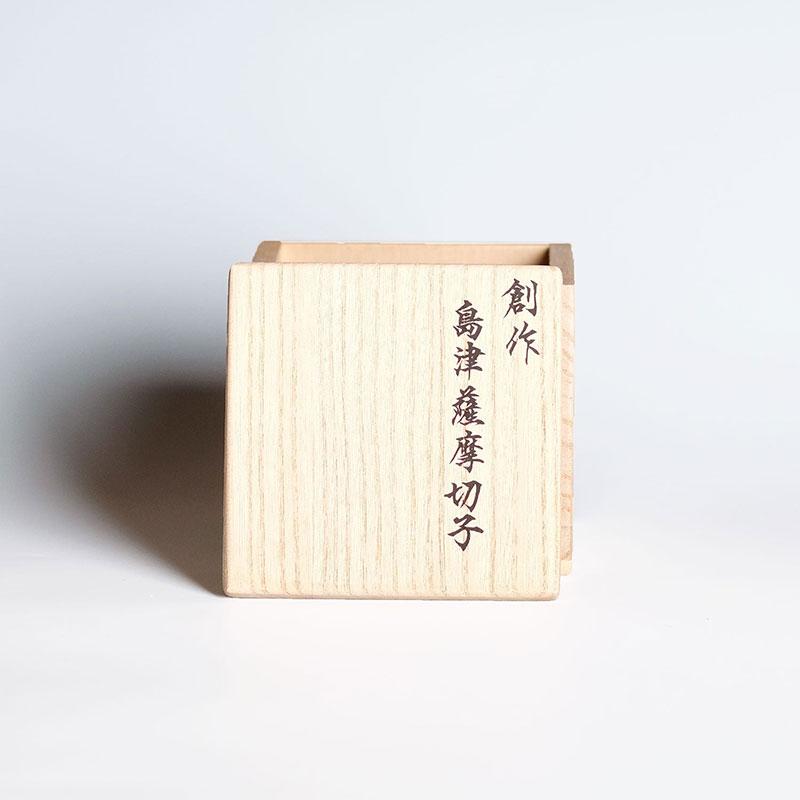 創作
島津薩摩切子